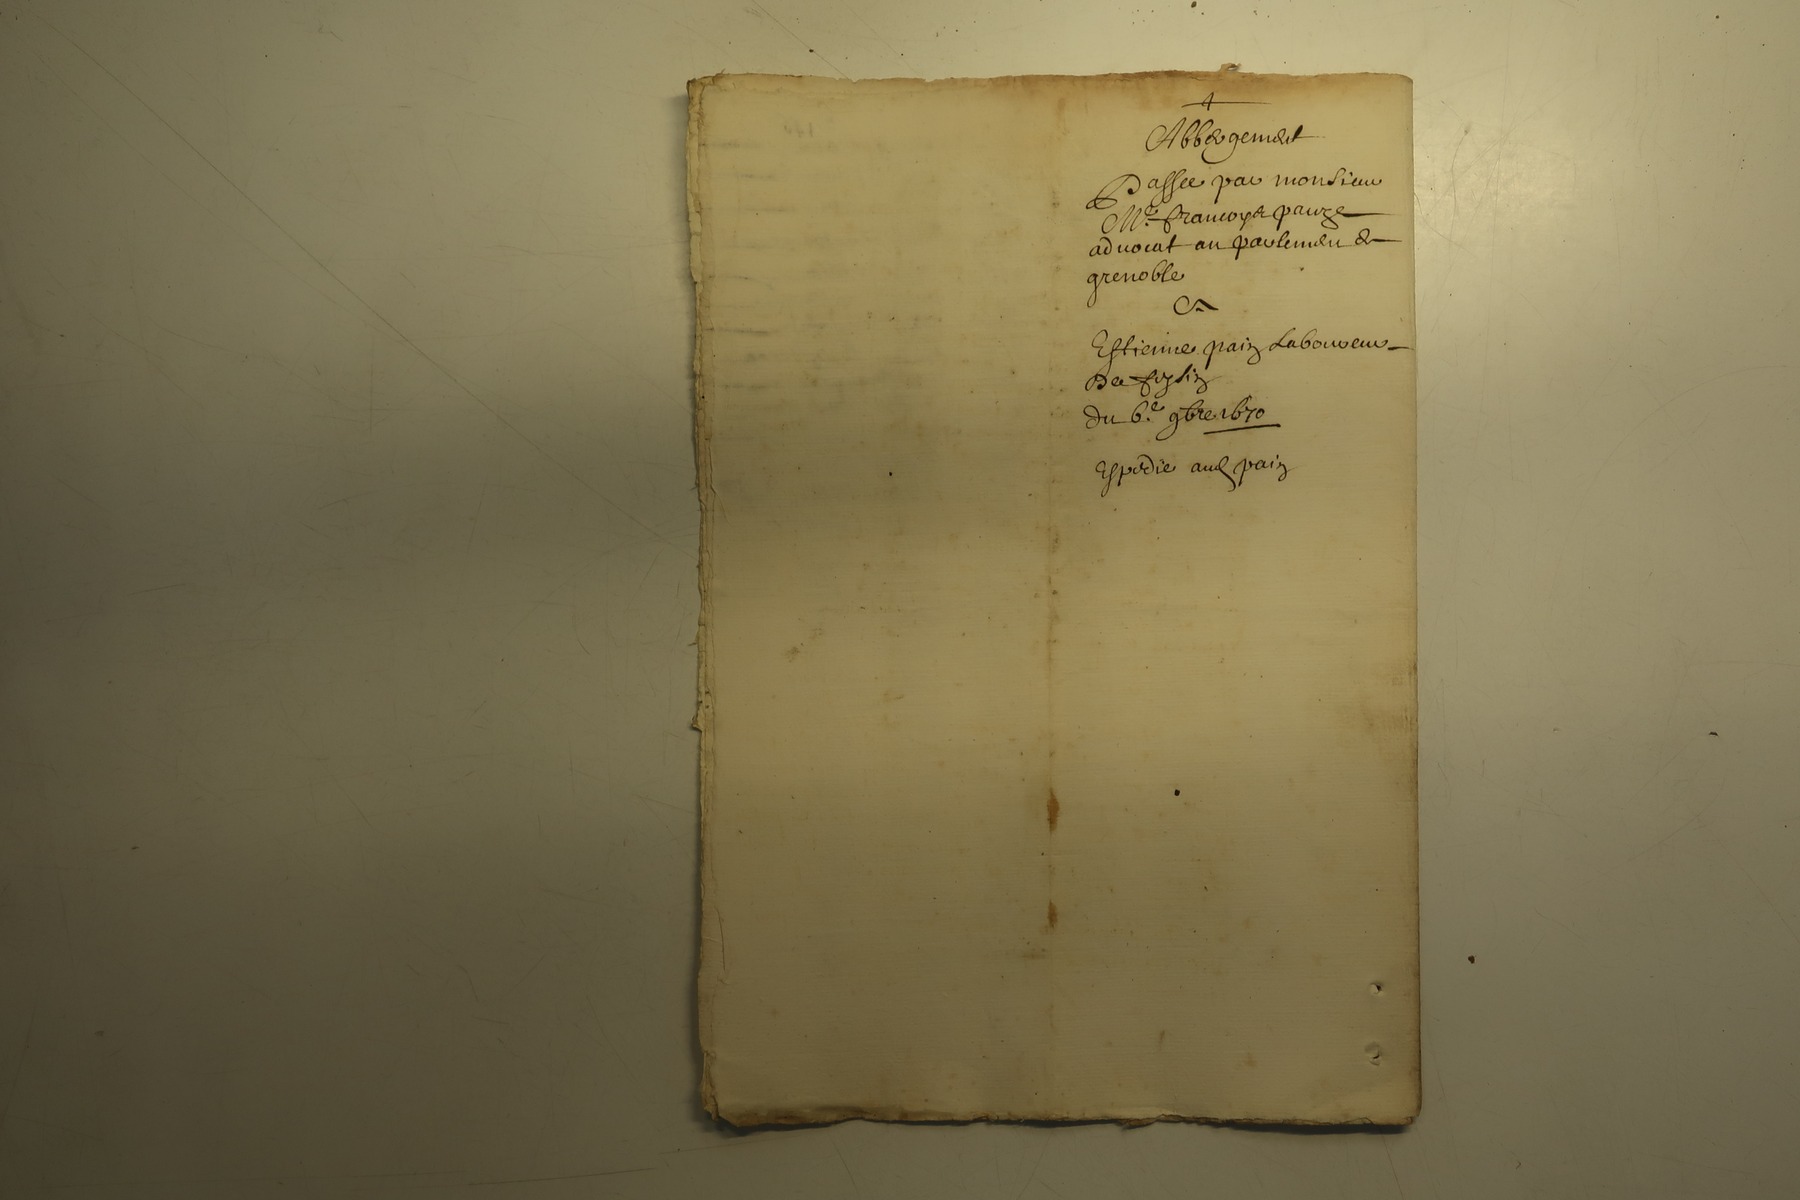 Abbergement
Passee par monsieur
Me francoys pauze
advocat au parlement de
grenoble
A
Estienne pain Laboureur
De
du 6e 9bre 1670
Expedie aud pain